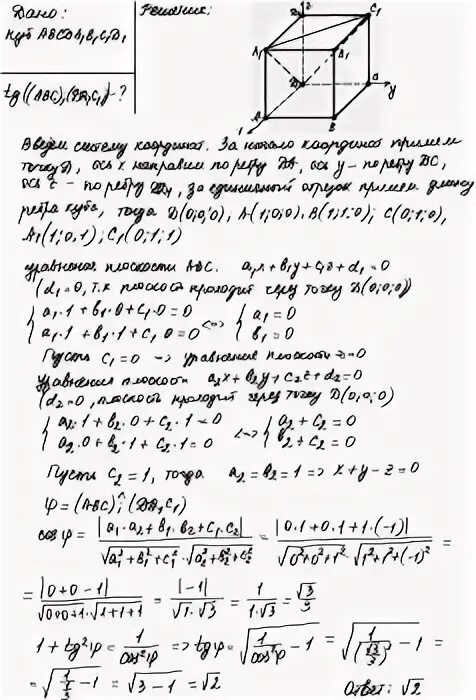 Дано:
куб ABCDA₁B₁C₁D₁
tg((ABC),(DA₁C₁)) - ?
Решение:
z
D₁
C₁
A₁
B₁
D
C
y
A
B
Введем систему координат. За начало координат примем
точку D, ось x направим по ребру DA, ось y - по ребру DC,
ось z - по ребру DD₁, за единичный отрезок примем длину
ребра куба, тогда D(0;0;0), A(1;0;0), B(1;1;0); C(0;1;0),
A₁(1;0;1); C₁(0;1;1)
уравнение плоскости ABC. a₁x + b₁y + c₁z + d₁ = 0
(d₁ = 0, т.к плоскость проходит через точку D(0;0;0))
{ a₁·1 + b₁·0 + c₁·0 = 0 <=> { a₁ = 0
{ a₁·1 + b₁·1 + c₁ 0 = 0 { b₁ = 0
Пусть c₁ = 0 => уравнение плоскости z=0
уравнения плоскости a₂x + b₂y + c₂z + d₂ = 0
(d₂ = 0, плоскость проходит через точку D(0;0;0)
{ a₂·1 + b₂·0 + c₂·1 = 0 <=> { a₂ + c₂ = 0
{ a₂·0 + b₂·1 + c₂·1 = 0 { b₂ + c₂ = 0
Пусть c₂ = 1, тогда a₂ = b₂ = 1 => x + y - z = 0
φ = (ABC)^; (DA₁C₁)
cos φ = |a₁·a₂ + b₁·b₂ + c₁·c₂| / (√(a₁² + b₁² + c₁²) · √(a₂² + b₂² + c₂²)) = |0·1 + 0·1 + 1·(-1)| / (√(0² + 0² + 1²) · √(1² + 1² + (-1)²)) =
= |0 + 0 - 1| / (√(0+0+1) · √(1+1+1)) = |-1| / (√1 · √3) = 1 / (1·√3) = √3/3
1 + tg²φ = 1/cos²φ => tg φ = √(1/cos²φ - 1) = √(1/(√3/3)² - 1) =
= √(1/(1/3) - 1) = √(3 - 1) = √2
Ответ: √2